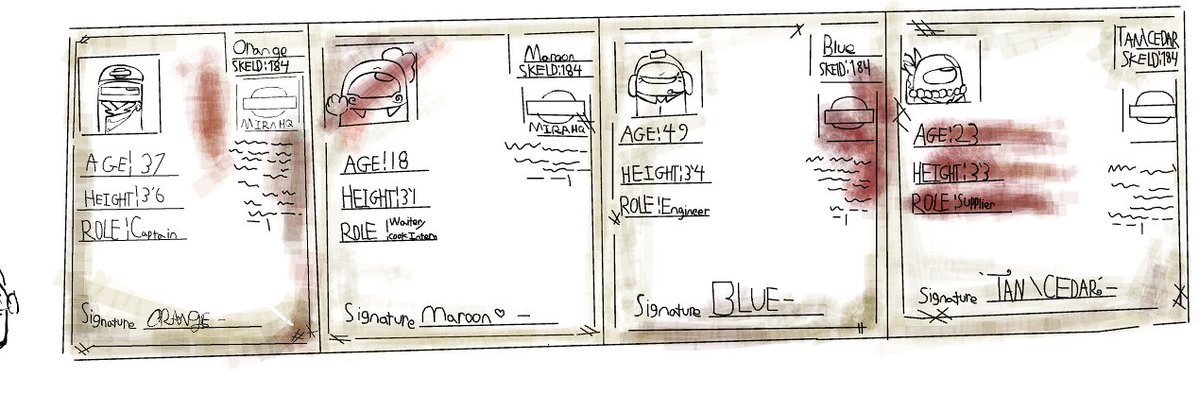 Orange
SKELD:184
MIRAHQ
AGE: 37
HEIGHT:3'6
ROLE:Captain
Signature ORANGE-
Maroon
SKELD:184
MIRAHQ
AGE:18
HEIGHT:3'1
ROLE:Waiter/
cook Intern
Signature Maroon♡ -
Blue
SKELD:184
AGE:49
HEIGHT:3'4
ROLE:Engineer
Signature BLUE-
TAN\CEDAR
SKELD:184
AGE:23
HEIGHT:3'3
ROLE:Supplier
Signature TAN\CEDAR:-